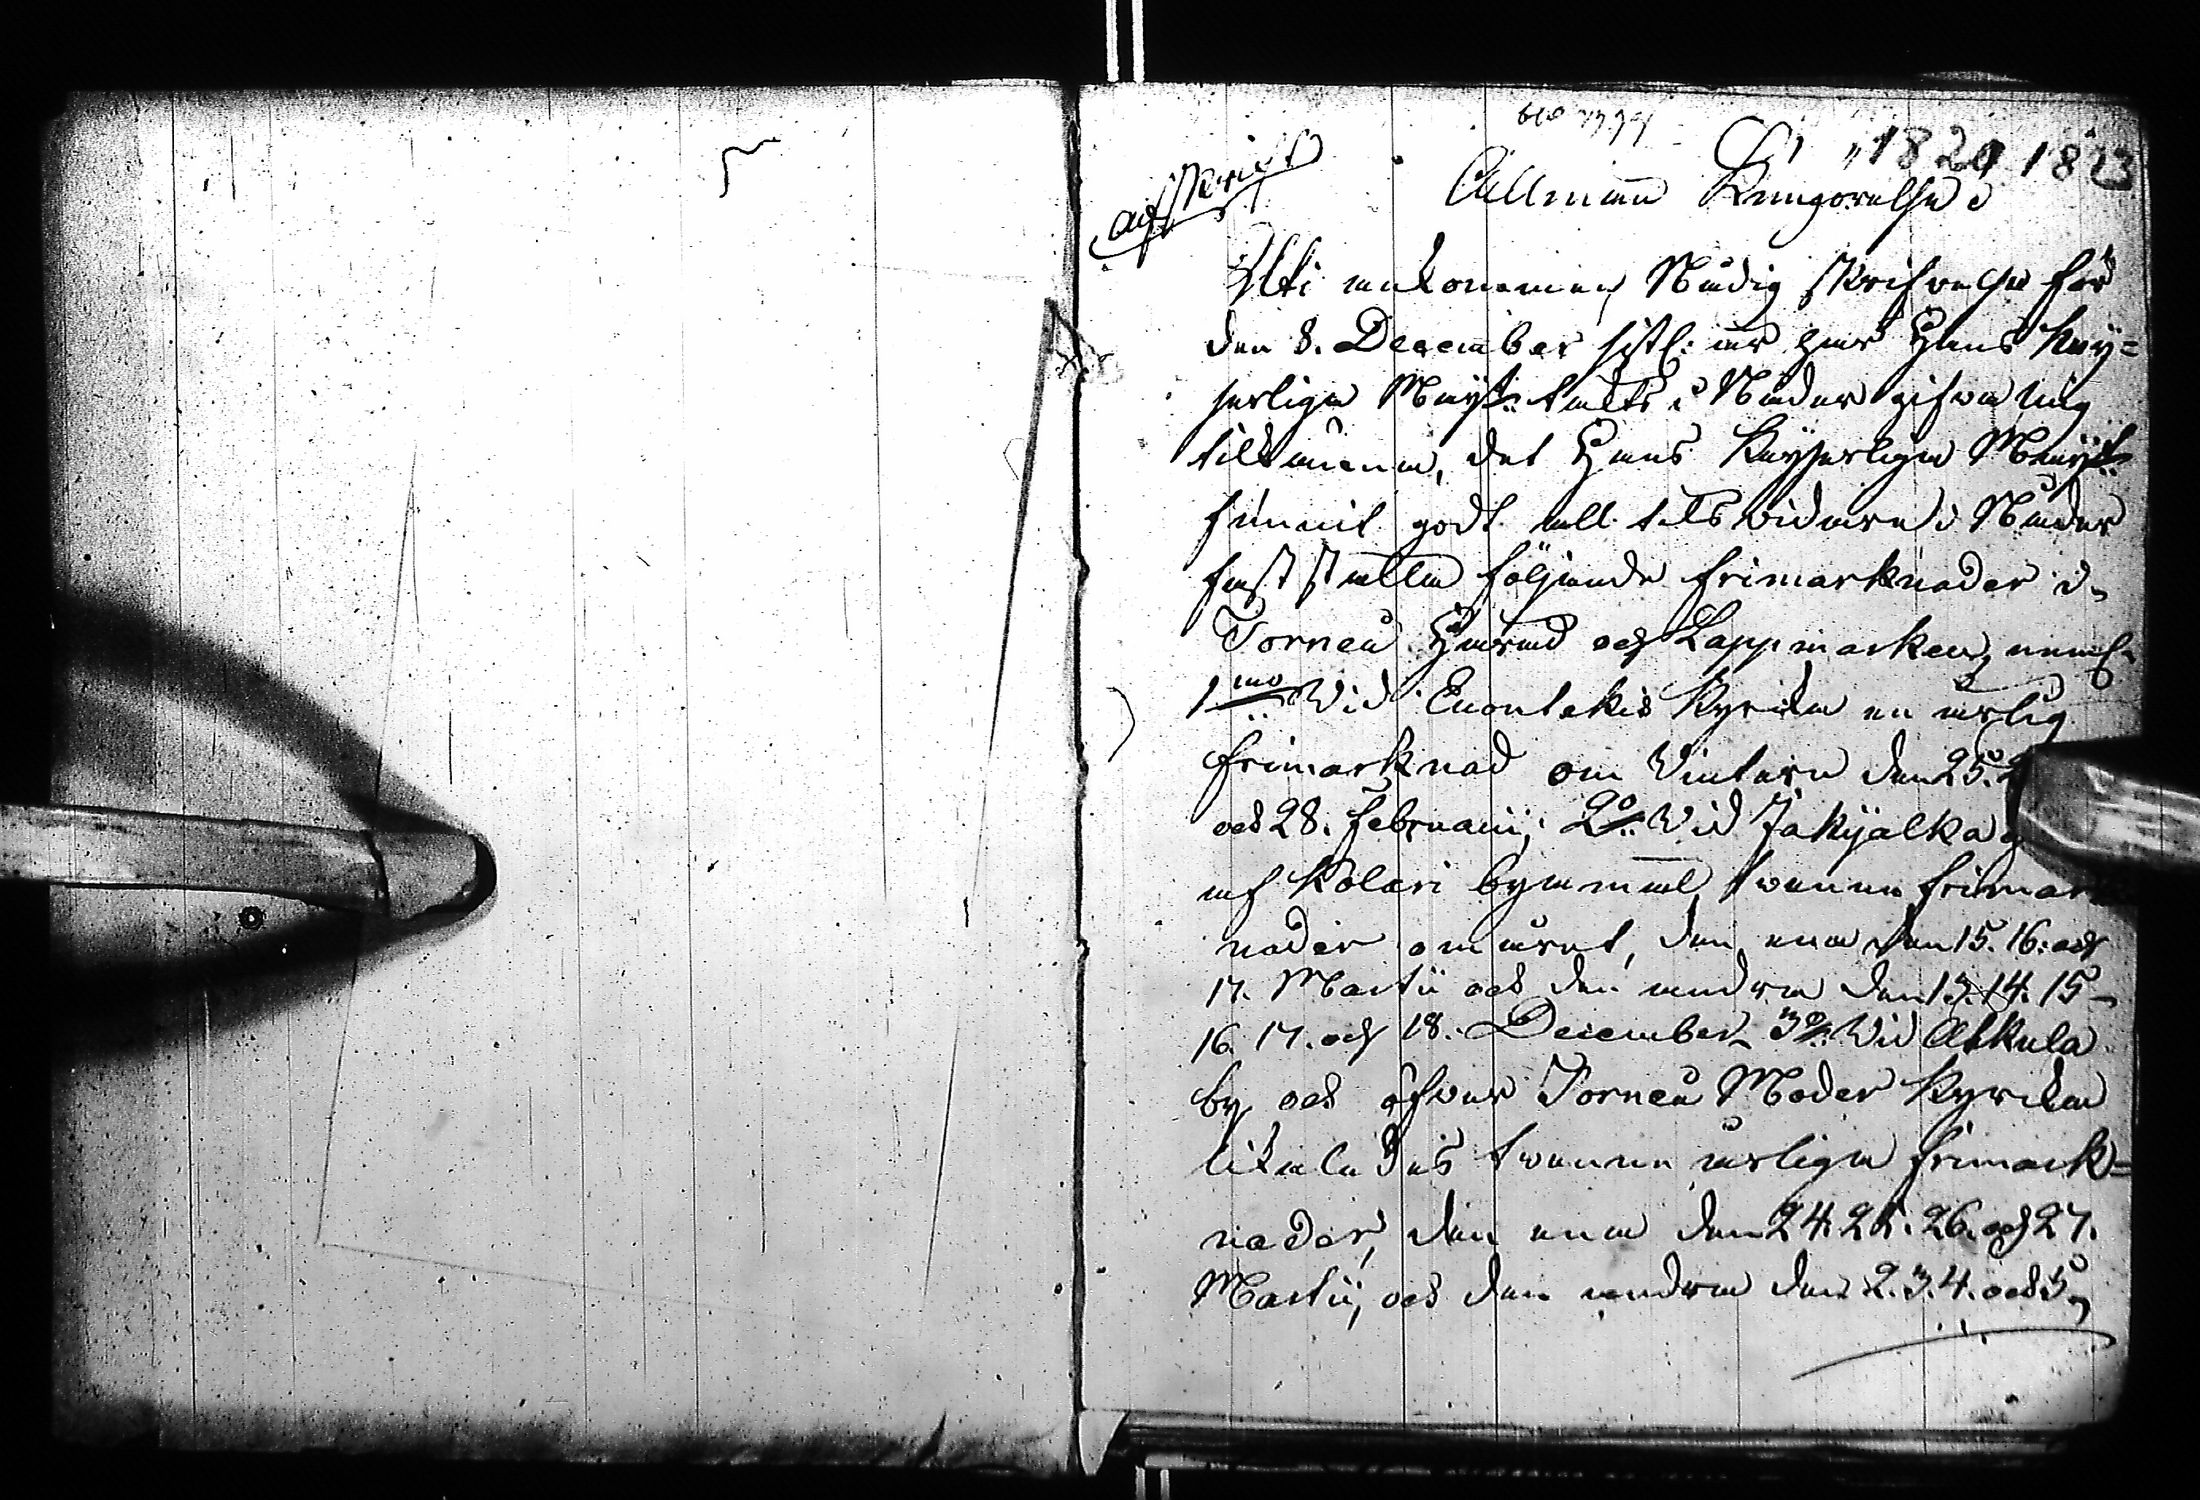 1820 1823
afskrift
Allmän Kungörelse
Uti ankommen Nådig skrifvelse för
den 8. December sistl: år har Hans Kej=
serliga Majst:s täckts i Nåder gifva mig
tillkänna, det Hans Kejserliga Majst:
funnit godt att tills vidare i Nåder
fastställa följande frimarknader i
Torneå Härad och Lappmarken, neml.
1mo Vid Enontekis Kyrka en årlig
frimarknad om Vintern den 25.
och 28. Februarii, 2o Vid Jokijalka
af Kolari byamål tvenne frimark
nader om året, den ena den 15. 16. och
17. Martii och den andra den 13. 14. 15
16. 17. och 18. December 3o Vid Alkula
by och öfver Torneå Moder Kyrka
likaledes tvenne årliga frimark=
nader, den ena den 24. 25. 26. och 27.
Martii, och den andra den 2. 3. 4. och 5